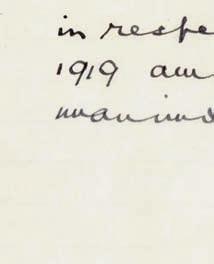 in respe
1919 am
unanimo